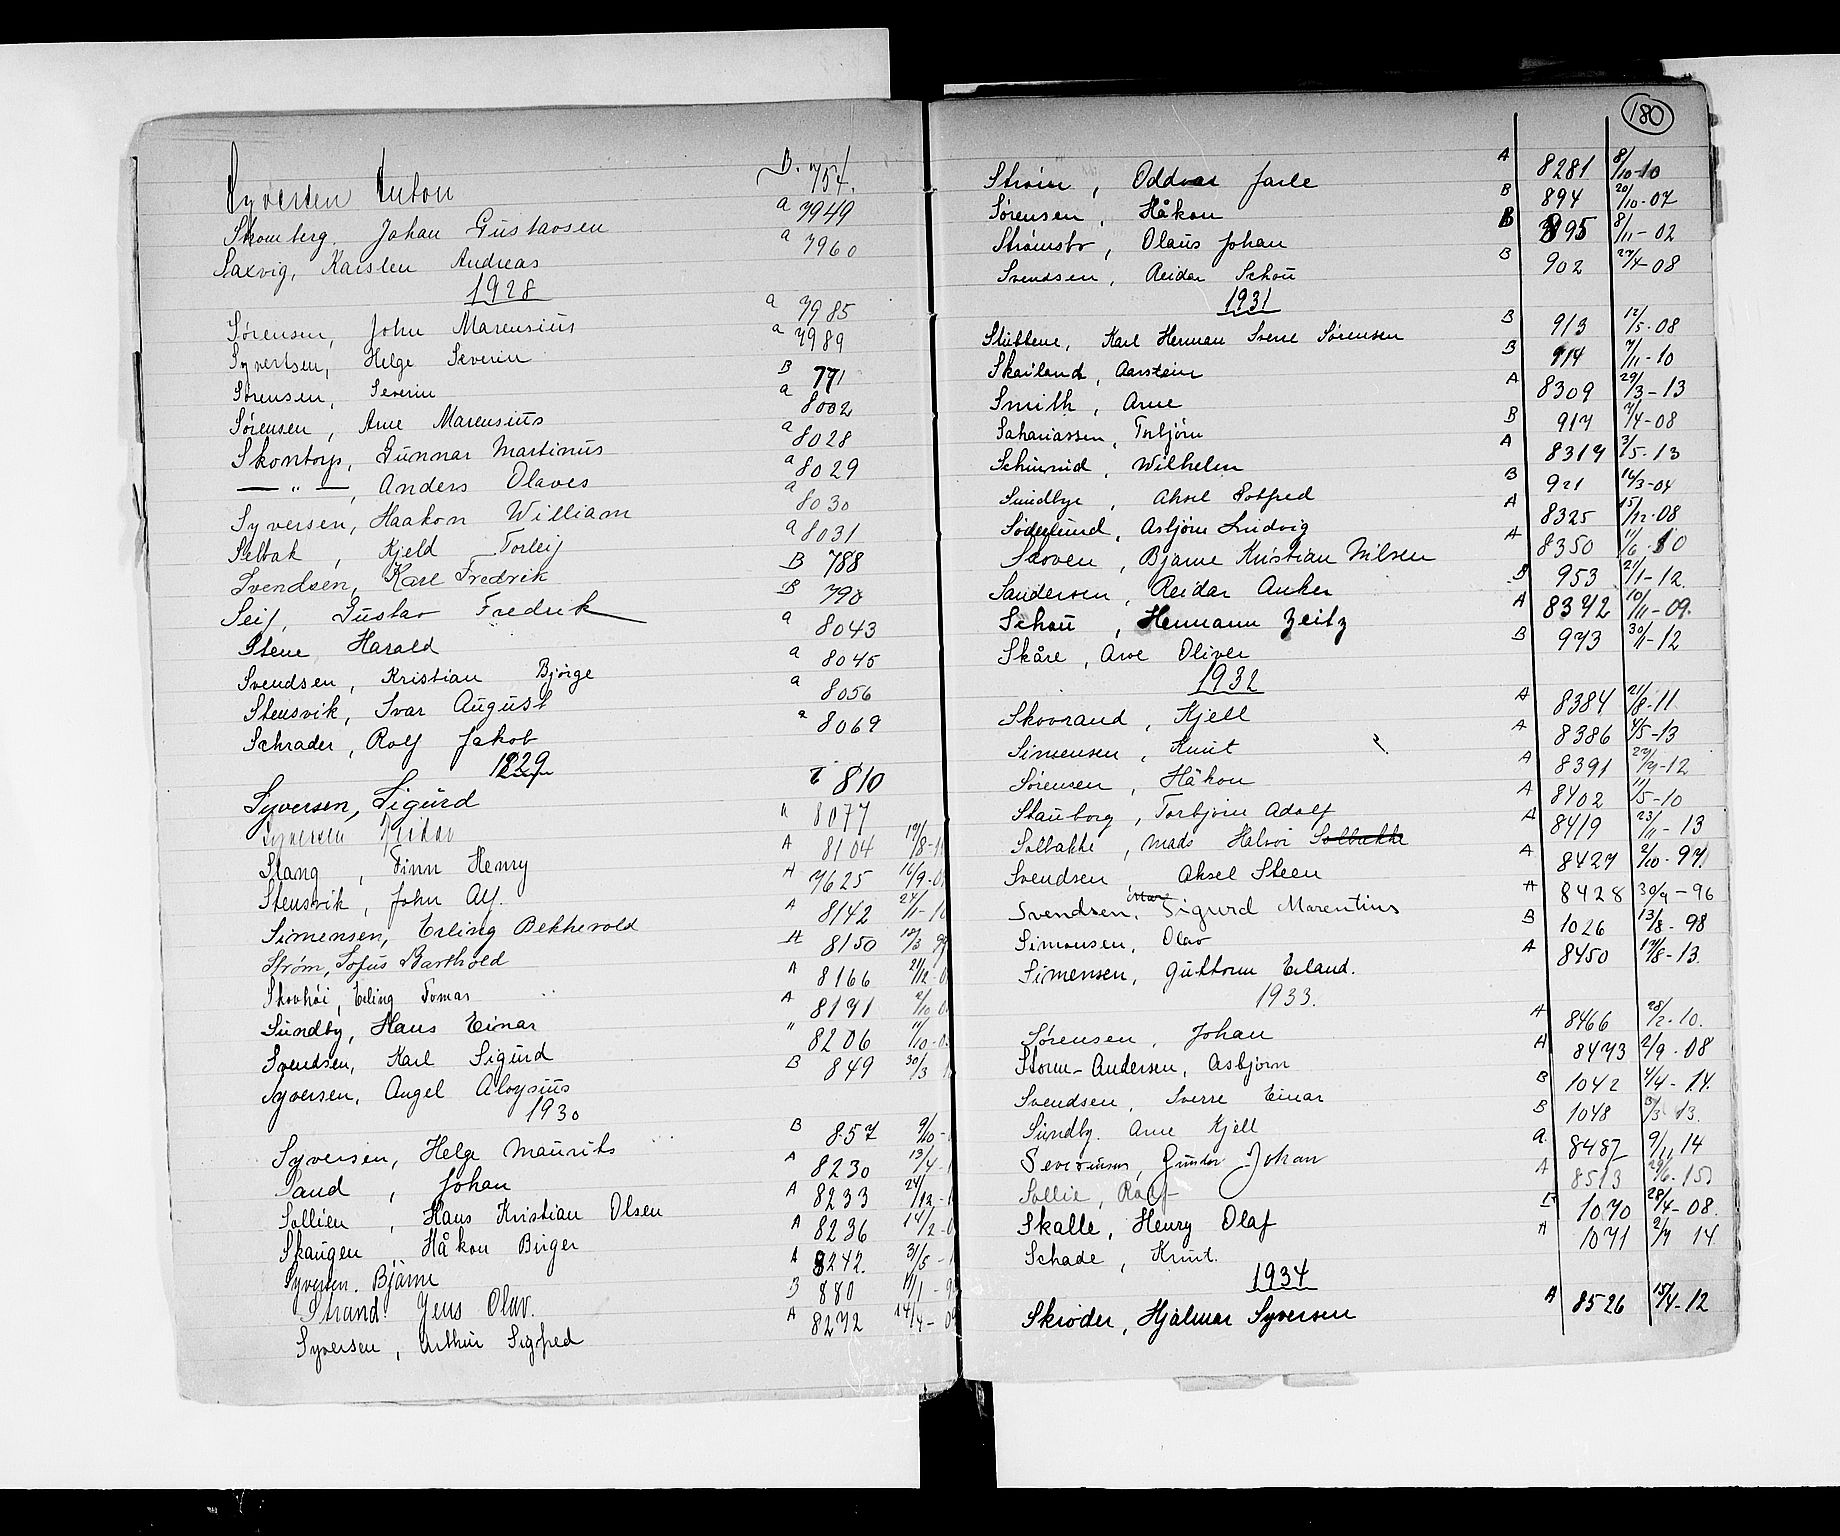 Syversen Anton B. 754.
Skomberg, Johan Gustavsen a 7949
Saxvig, Karsten Andreas a 7960
1928
Sørensen, John Marensius a 7985
Syvertsen, Helge Severin a 7989
Sørensen, Severin B 771
Sørensen, Arne Marensius a 8002
Skontorp, Gunnar Martinus a 8028
— " —, Anders Olaves a 8029
Syversen, Haakon William a 8030
Selbak, Kjeld Torleif a 8031
Svendsen, Karl Fredrik B 788
Seif, Gustav Fredrik B 790
Stene Harald a 8043
Svendsen, Kristian Bjørge a 8045
Stensvik, Ivar August a 8056
Schrader, Rolf Jakob a 8069
1929
Syversen, Sigurd B 810
Syversen Reidar " 8077
Stang, Finn Henry A 8104 19/8-1
Stensvik, John Alf. A 7625 16/9-0
Simensen, Erling Bekkevold A 8142 24/1-10
Strøm, Sofus Barthold A 8150 12/3 99
Skovhøi, Erling Tomas A 8166 21/12-0
Sundby, Hans Einar A 8191 2/10 0
Svendsen, Karl Sigurd " 8206 11/10-0
Syversen, Angel Aloysius B 849 30/3 1
1930
Syversen, Helge Maurits B 857 9/10-
Sand, Johan A 8230 13/4-1
Sollien, Hans Kristian Olsen A 8233 24/12-1
Skaugen, Håkon Birger A 8236 14/2-0
Syversen. Bjarne A 8242. 31/5-1
Strand. Jens Olav. B 880 11/1-9
Syversen, Arthur Sigfred A 8272 14/4-0
180
Strøm, Oddvar Jarle A 8281 8/10-10
Sørensen, Håkon B 894 20/10-07
Strømsbr, Olaus Johan B 895 8/11-02
Svendsen, Reidar Schou B 902 27/4-08
1931
Stubbene, Karl Herman Sverre Sørensen B 913 12/5-08
Skailand, Aarstein B 914 7/11-10
Smith, Arne A 8309 29/3-13
Sahariassen, Torbjørn B 917 7/4-08
Schinrud, Wilhelm A 8317 3/5-13
Sundbye, Aksel Gotfred B 921 16/3-04
Søderlund, Asbjørn Ludvig A 8325 15/12-08
Skoven, Bjarne Kristian Nilsen A 8350 11/6-10
Sandersen, Reidar Anker B 953 21/1-12.
Schou, Hermann Zeitz A 8372 10/11-09.
Skåre, Arve Oliver B 973 30/11-12
1932
Skovrand, Kjell A 8384 21/8-11
Simensen, Knut A 8386 4/5-13
Sørensen, Håkon A 8391 27/9-12
Stauborg, Torbjørn Adolf A 8402 11/5-10
Solbakke, Mads Halvor Solbakke A 8419 23/11-13
Svendsen Aksel Steen A 8427 2/10-97
Svendsen, Sigurd Marentius A 8428 30/9-96
Simonsen, Olav B 1026 13/8-98
Simensen, Guttorm Erland. A 8450 17/8-13.
1933.
Sørensen, Johan A 8466 28/2-10.
Storm-Andersen, Asbjørn A 8473 2/9-08
Svendsen, Sverre Einar B 1042 4/4-14.
Sundby. Arne Kjell B 1048 3/3 13.
Severinsen, Gunder Johan a. 8487 9/11 14
Sollie, Rolf A 8513 29/6-15
Skalle, Henry Olaf B 1070 28/4-08.
Schade, Knut. A 1071 2/7 14
1934
Skrøder, Hjalmar Syversen A 8526 15/4-12